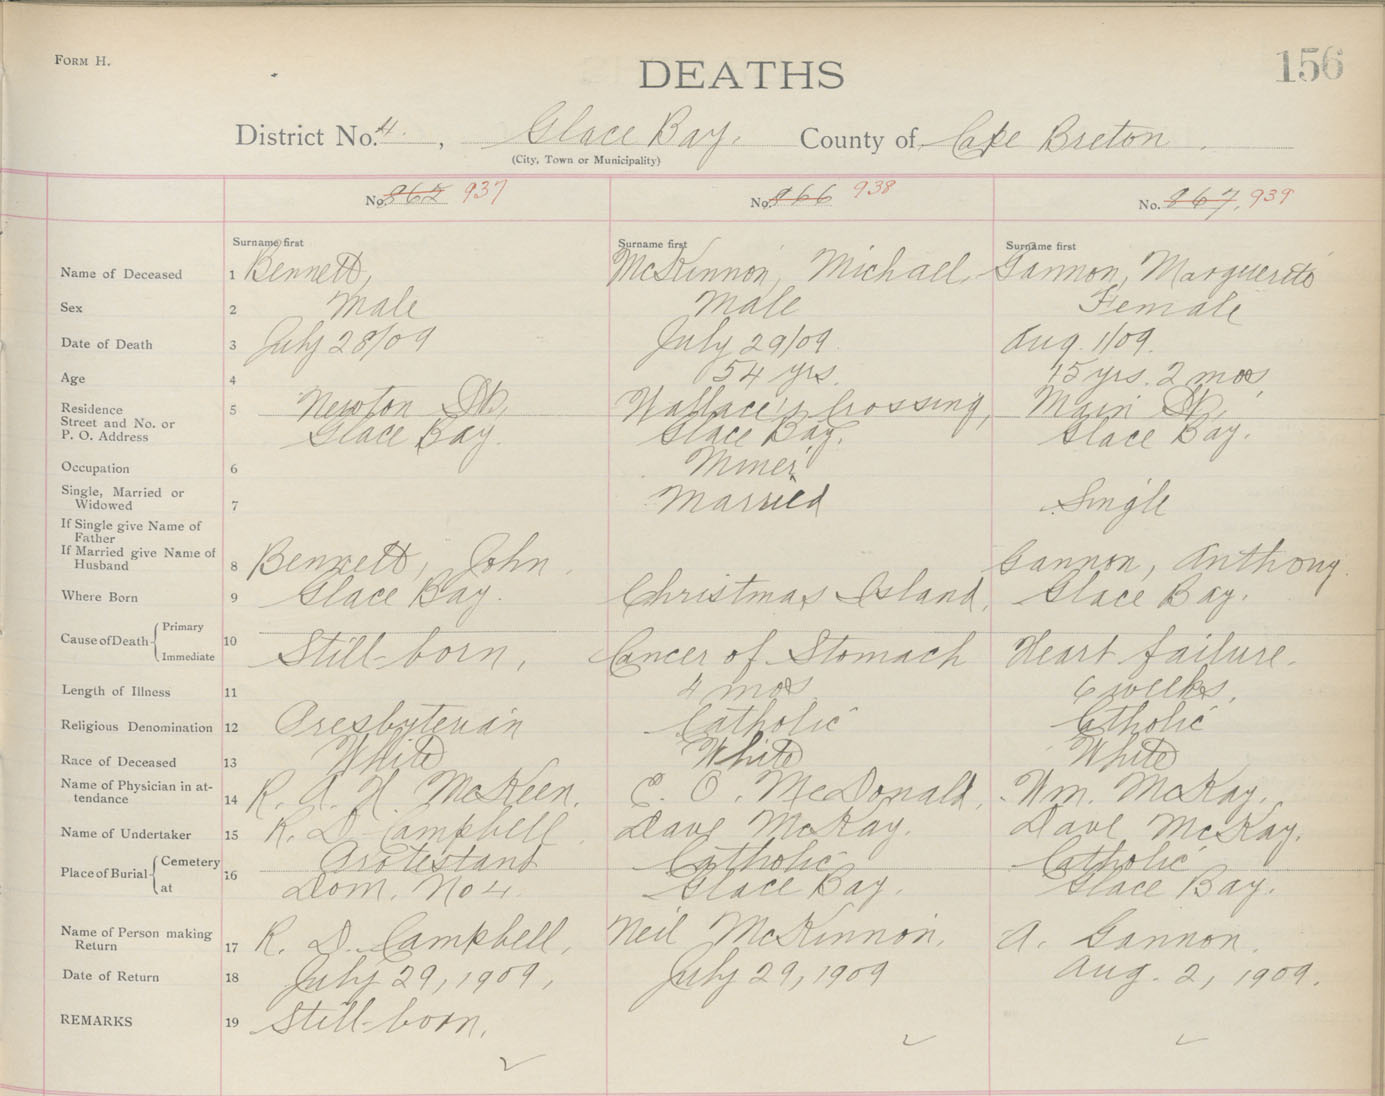 FORM H.
DEATHS
156
District No. 4. , Glace Bay. County of Cape Breton.
(City, Town or Municipality)
No. 937
No. 866 938
No. 867, 939
Surname first
Surname first
Surname first
Name of Deceased 1 Bennett, McKinnon, Michael, Gannon, Marguerite
Sex 2 Male Male Female
Date of Death 3 July 28/09 July 29/09 Aug. 1/09.
Age 4 54 yrs. 15 yrs. 2 mos
Residence 5 Newton St, Wallace's Crossing, Main St,
Street and No. or
P. O. Address Glace Bay. Glace Bay. Glace Bay.
Occupation 6 Miner
Single, Married or
Widowed 7 Married Single
If Single give Name of
Father
If Married give Name of
Husband 8 Bennett, John. Gannon, Anthony.
Where Born 9 Glace Bay. Christmas Island, Glace Bay.
Cause of Death Primary
Immediate 10 Still-born, Cancer of Stomach Heart failure.
Length of Illness 11 4 mos 6 weeks,
Religious Denomination 12 Presbyterian Catholic Catholic
Race of Deceased 13 White White White
Name of Physician in at-
tendance 14 R. A. H. McKeen. E. O. McDonald, Wm. McKay.
Name of Undertaker 15 R. D. Campbell Dave McKay. Dave McKay.
Place of Burial Cemetery 16 Protestant Catholic Catholic
at Dom. No 4 Glace Bay. Glace Bay.
Name of Person making
Return 17 R. D. Campbell, Neil McKinnon, A. Gannon.
Date of Return 18 July 29, 1909, July 29, 1909 Aug. 2, 1909.
REMARKS 19 Still-born,